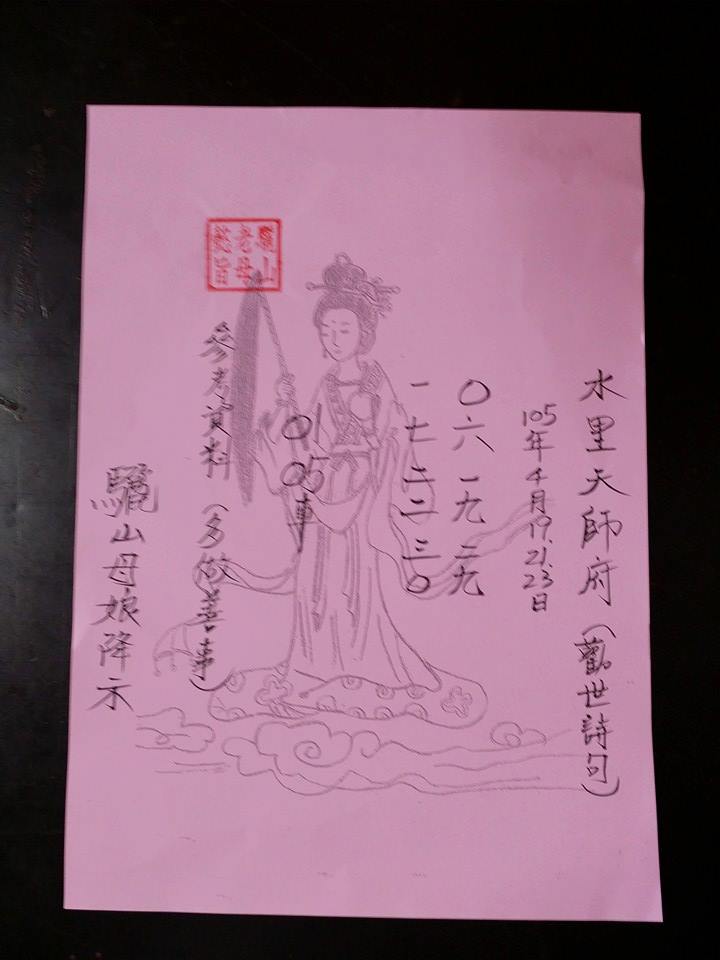 水里天師府(觀世詩句)
105年4月19.21.23日
〇六 一九 二九
一七 二二 三〇
01
05車
驪山
老母
懿旨
參考資料(多做善事)
驪山母娘降示